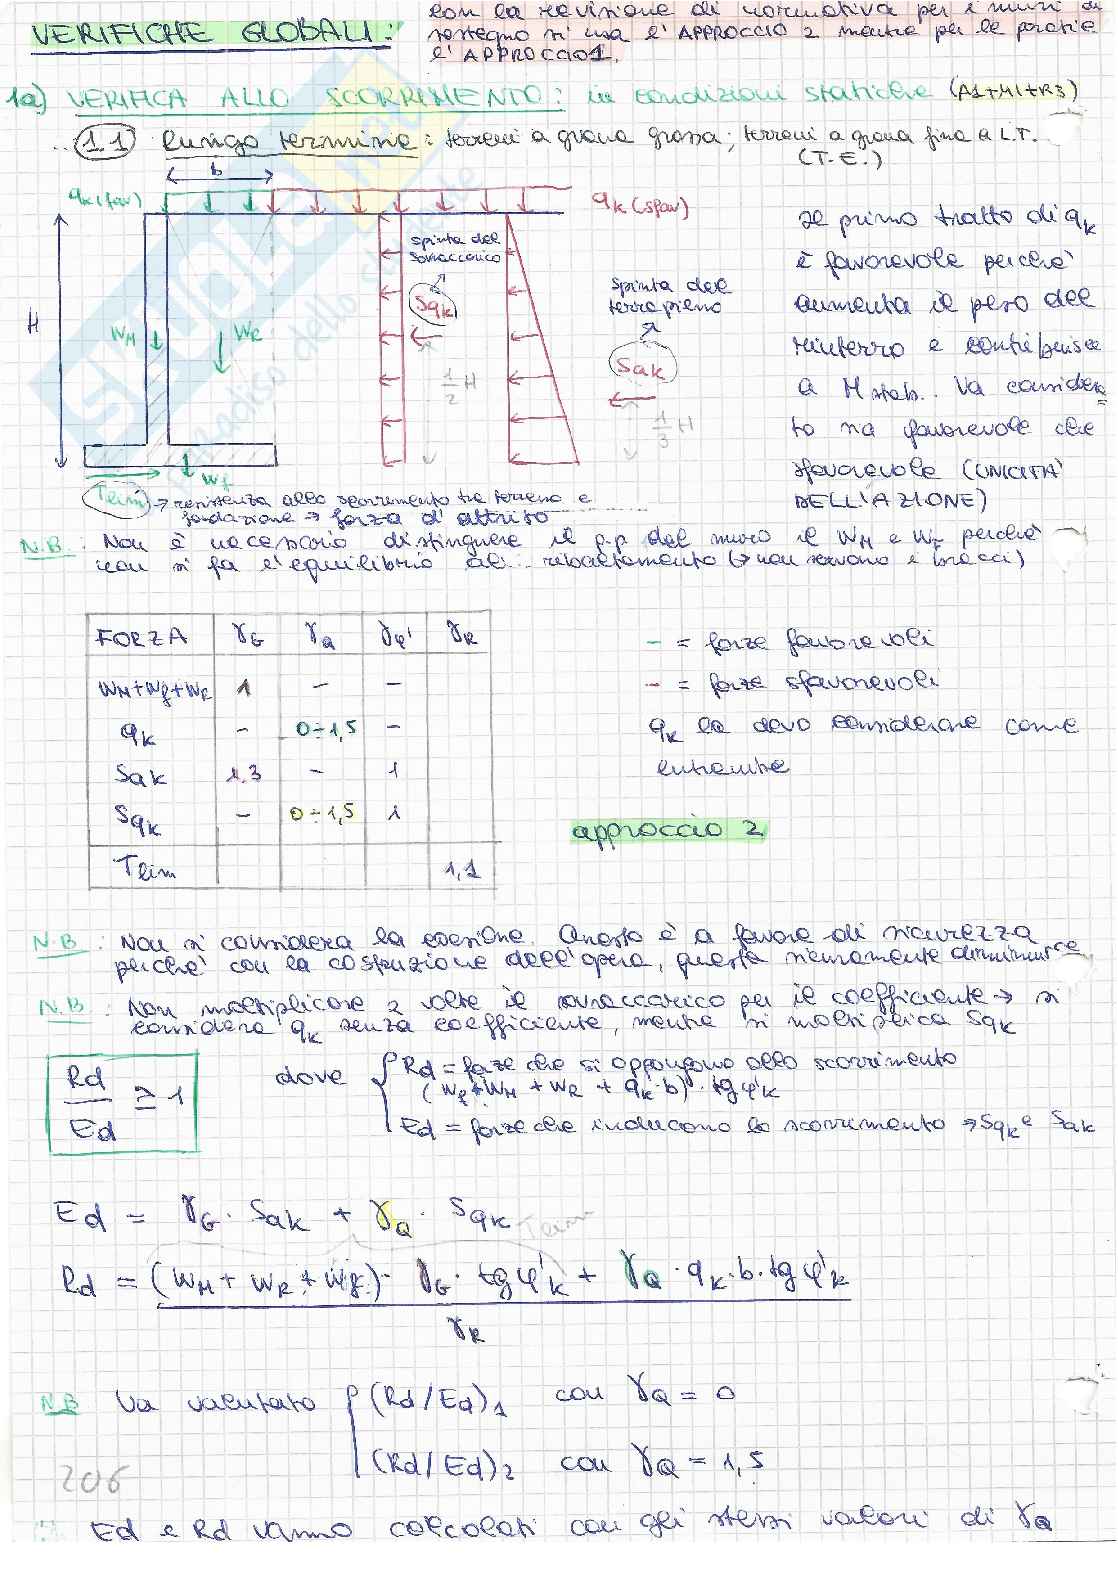 con la revisione di normativa per i muri di
VERIFICHE GLOBALI: sostegno si usa l'APPROCCIO 2 mentre per le paratie
l'APPROCCIO 1.
1a) VERIFICA ALLO SCORRIMENTO: in condizioni statiche (A1+M1+R3)
1.1 lungo termine: terreni a grana grossa; terreni a grana fina a L.T.
(T.E.)
b
qk (fav)
qk (sfav)
spinta del
sovraccarico
Sqk
1/2 H
H
WM
WR
Wf
spinta del
terrapieno
Sak
1/3 H
Il primo tratto di qk
è favorevole perché
aumenta il peso del
rinterro e contribuisce
a Mstab. Va considera
to sia favorevole che
sfavorevole (UNICITÀ
DELL'AZIONE)
Tlim → resistenza allo scorrimento tra terreno e
fondazione → forza d'attrito
N.B.: Non è necessario distinguere il p.p. del muro il WM e Wf perché
non si fa l'equilibrio al ribaltamento (→ non servono i bracci)
FORZA γG γQ γφ' γR
WM+Wf+WR 1 - -
qk - 0÷1,5 -
Sak 1,3 - 1
Sqk - 0÷1,5 1
Tlim 1,1
- = forze favorevoli
- = forze sfavorevoli
qk la devo considerare come
entrambe
approccio 2
N.B.: Non si considera la coesione. Questo è a favore di sicurezza
perché con la costruzione dell'opera, questa sicuramente diminuisce
N.B.: Non moltiplicare 2 volte il sovraccarico per il coefficiente → si
considera qk senza coefficiente, mentre si moltiplica Sqk
Rd/Ed ≥ 1
dove { Rd = forze che si oppongono allo scorrimento
(Wf + WM + WR + qk·b)·tgφ'k
Ed = forze che inducono lo scorrimento → Sqk e Sak
Ed = γG · Sak + γQ · Sqk
Tlim
Rd = (WM + WR + Wf) · γG · tgφ'k + γQ · qk · b · tgφ'k
γR
N.B. Va valutato { (Rd/Ed)1 con γQ = 0
(Rd/Ed)2 con γQ = 1,5
206
Ed e Rd vanno calcolati con gli stessi valori di γQ